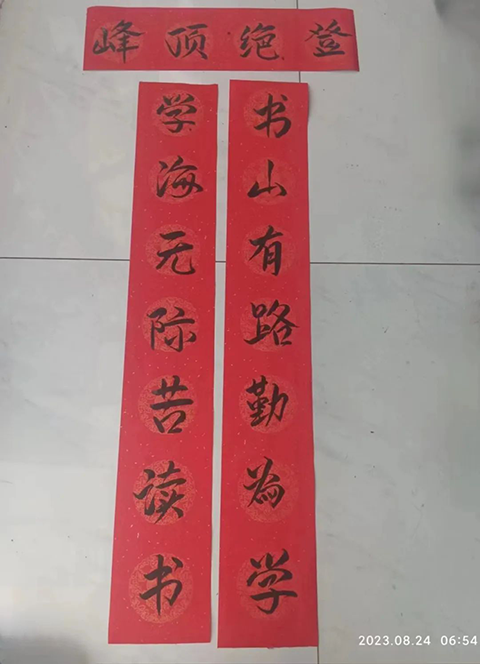 登绝顶峰
书山有路勤为学
学海无际苦读书
2023.08.24 06:54